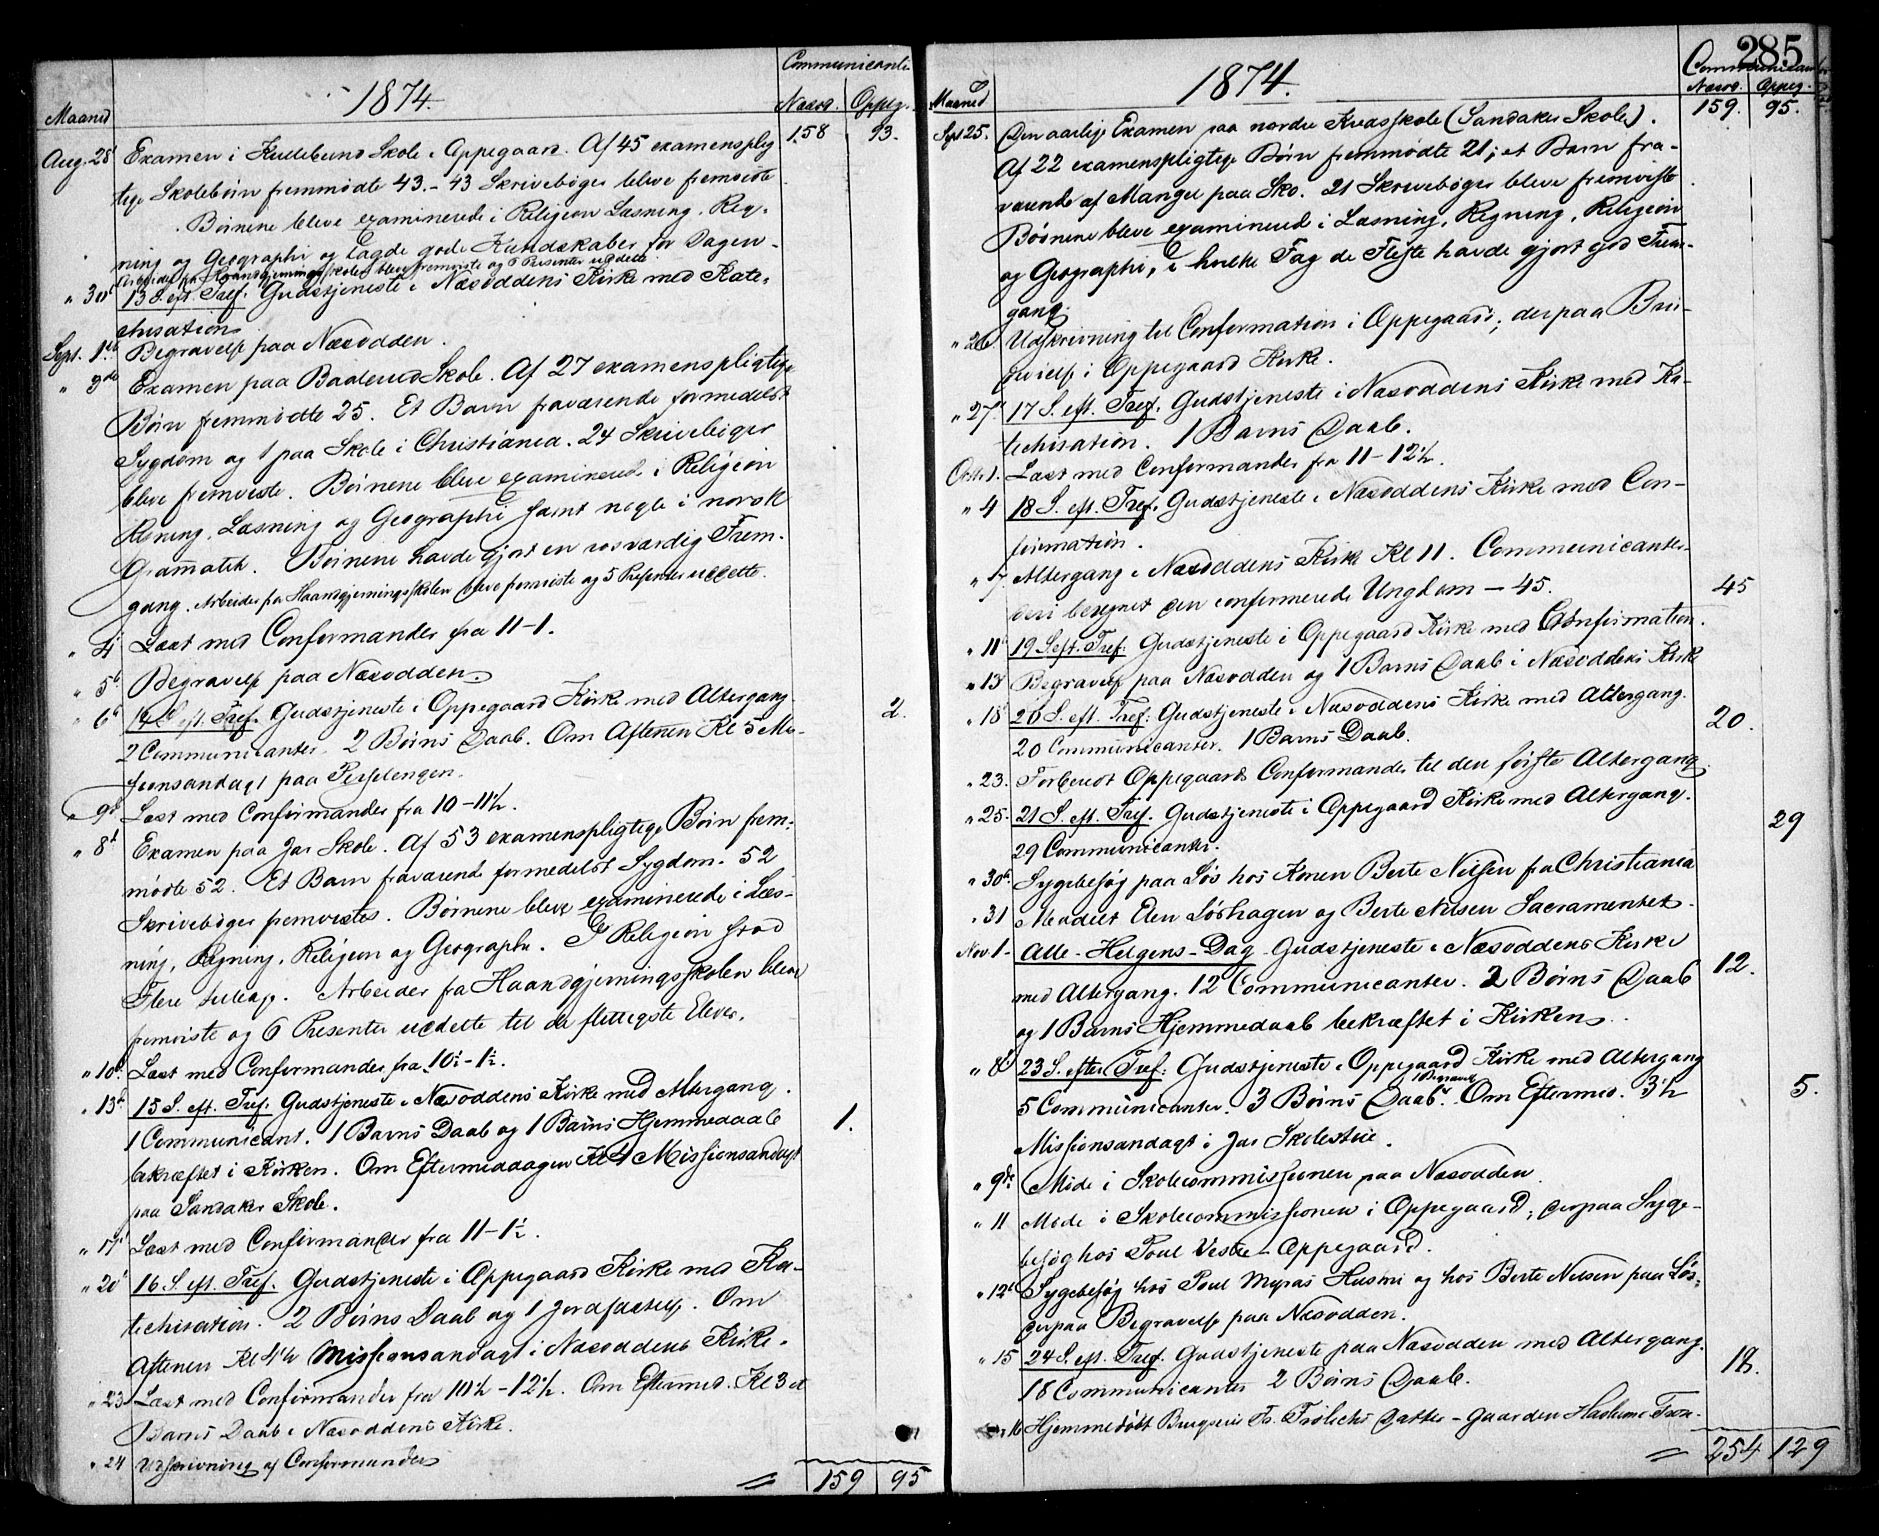 Communicanter
1874.
Maaned
Næsod. Oppeg.
158 93.
Aug. 28 Examen i Kullebund Skole i Oppegaard. Af 45 examensplig
tige Skolebørn fremmødte 43. – 43 Skrivebøger bleve fremviste
Børnene bleve examinerede i Religion Læsning, Reg-
ning og Geographi og lagde gode Kundskaber for Dagen.
Arbeider fra Haandgjerningsskolen bleve fremviste og 6 Presenter uddelte.
" 30 13 S. eft. Tref. Gudstjeneste i Næsoddens Kirke med Kate-
chisation.
Sept. 1. Begravelse paa Næsodden.
" 3 Examen paa Baaterud Skole. Af 27 examenspligtige
Børn fremmødte 25. Et Barn fraværende formedelst
Sygdom og 1 paa Skole i Christiania. 24 Skrivebøger
bleve fremviste. Børnene bleve examinerede i Religion
Regning, Læsning og Geographi samt nogle i norsk
Gramatik. Børnene havde gjort en rosværdig Frem-
gang. Arbeider fra Haandgjerningsskolen bleve fremviste og 5 Presenter uddelte.
" 4 Læst med Confirmander fra 11–1.
" 5 Begravelse paa Næsodden
" 6 14 S. eft. Tref. Gudstjeneste i Oppegaard Kirke med Altergang 2.
2 Communicanter. 2 Børns Daab. Om Aftenen Kl 5 Mis-
sionsandagt paa
" 9 Læst med Confirmander fra 10–11½.
" 8 Examen paa Jar Skole. Af 53 examenspligtige Børn frem-
mødte 52. Et Barn fraværende formedelst Sygdom. 52
Skrivebøger fremvistes. Børnene bleve examinerede i Læs-
ning, Regning, Religion og Geographi. I Religion stod
Flere tilbage. Arbeider fra Haandgjerningsskolen bleve
fremviste og 6 Presenter uddelte til de flittigste Elever.
" 10 Læst med Confirmander fra 10½–1½.
" 13 15 S. eft. Tref. Gudstjeneste i Næsoddens Kirke med Altergang.
1 Communicant. 1 Barns Daab og 1 Barns Hjemmedaab 1.
bekræftet i Kirken. Om Eftermiddagen Kl 4 Missionsandagt
paa Sandaker Skole.
" 17 Læst med Confirmander fra 11–1½.
" 20 16. S. eft. Tref. Gudstjeneste i Oppegaard Kirke med Ka-
techisation. 2 Børns Daab og 1 Jordfæstelse. Om
Aftenen Kl 4½ Missionsandagt i Næsoddens Kirke.
" 23 Læst med Confirmander fra 10½–12½. Om Eftermid. Kl 3 et
Barns Daab i Næsoddens Kirke.
" 24 Udskrivning af Confirmander
159 95
285
Communicanter
1874.
Maaned
Næsod. Oppeg.
159. 95.
Sept 25. Den aarlige Examen paa nordre Kredsskole (Sandaker Skole).
Af 22 examenspligtige Børn fremmødte 21; et Barn fra-
værende af Mangel paa Sko. 21 Skrivebøger bleve fremviste
Børnene bleve examinerede i Læsning, Regning, Religion
og Geographi, i hvilke Fag de Fleste havde gjort god Frem-
gang.
" 26 Udskrivning til Confirmation i Oppegaard; derpaa Bru-
devielse i Oppegaard Kirke.
" 27. 17 S. eft. Tref. Gudstjeneste i Næsoddens Kirke med Ka-
techisation. 1 Barns Daab.
Octr. 1. Læst med Confirmander fra 11–12½.
" 4 18 S. eft. Tref. Gudstjeneste i Næsoddens Kirke med Con-
firmation.
" 7 Altergang i Næsoddens Kirke Kl 11. Communicanter
deri beregnet den confirmerede Ungdom – 45. 45
" 11 19 S eft. Tref. Gudstjeneste i Oppegaard Kirke med Confirmation.
" 13 Begravelse paa Næsodden og 1 Barns Daab i Næsoddens Kirke
" 18 20 S. eft. Tref: Gudstjeneste i Næsoddens Kirke med Altergang.
20 Communicanter. 1 Barns Daab. 20.
" 23. Forberedt Oppegaards Confirmander til den første Altergang.
" 25. 21 S. eft. Tref. Gudstjeneste i Oppegaard Kirke med Altergang.
29 Communicanter. 29
" 30 Sygebesøg paa Løs hos Konen Berte Nilsen fra Christiania
" 31 Meddelt Elen Løshagen og Berte Nilsen Sacramentet.
Nov 1 – Alle-Helgens-Dag. Gudstjeneste i Næsoddens Kirke
med Altergang. 12 Communicanter. 2 Børns Daab 12.
og 1 Barns Hjemmedaab bekræftet i Kirken.
" 8 23 S. efter Tref: Gudstjeneste i Oppegaard Kirke med Altergang
5 Communicanter. 3 Børns Daab. 1 Begravelse. Om Eftermed. 3½ 5.
Missionsandagt i Jar Skolestue.
" 9 Møde i Skolecommissionen paa Næsodden.
" 11 Møde i Skolecommissionen i Oppegaard; derpaa Syge-
besøg hos Poul Vestre-Oppegaard.
" 12 Sygebesøg hos Poul Myras Hustru og hos Berte Nilsen paa Løs;
derpaa Begravelse paa Næsodden.
" 15 24 S. eft. Tref. Gudstjeneste paa Næsodden med Altergang.
18 Communicanter 2 Børns Daab. 18.
" 16 Hjemmedøbt Fr. Frölichs Datter – Gaarden
254 129